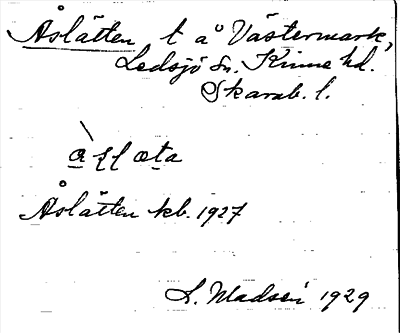 Åslätten t å Västermark,
Ledsjö sn. Kinne hd.
Skarab. l.
Åslätten kb. 1927
L. Madsén 1929